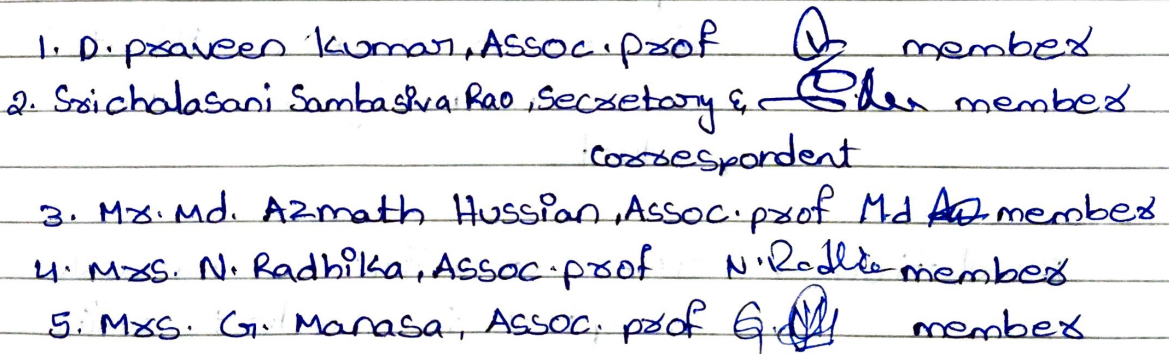 1. D. praveen kumar, Assoc. prof member
2. Sri chalasani Sambasiva Rao, Secretary & member
correspondent
3. Mr. Md. Azmath Hussian, Assoc. prof Md member
4. Mrs. N. Radhika, Assoc. prof N. Radhika member
5. Mrs. G. Manasa, Assoc. prof G. member